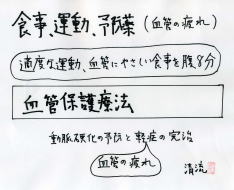 食事、運動、予防薬(血管の疲れ)
適度な運動、血管にやさしい食事を腹8分
血管保護療法
動脈硬化の予防と軽症の完治
血管の疲れ
清流